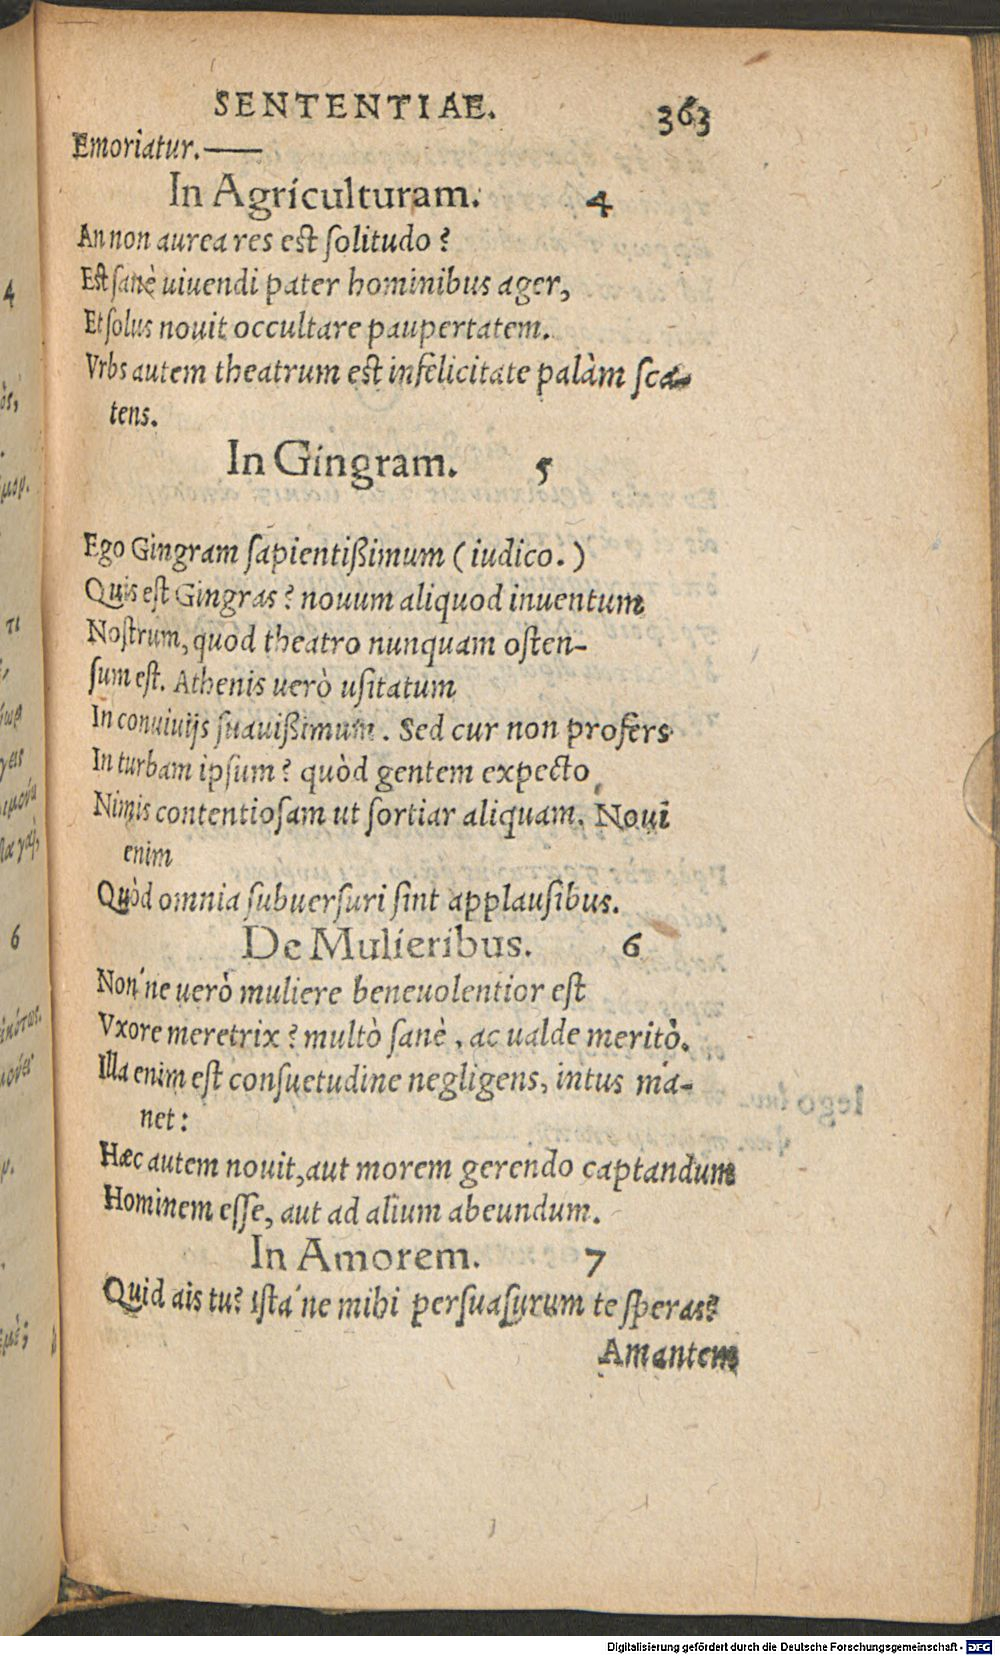 SENTENTIAE. 363
Emoriatur.——
In Agriculturam. 4
An non aurea res est solitudo?
Est sanè uiuendi pater hominibus ager,
Et solus nouit occultare paupertatem.
Vrbs autem theatrum est infelicitate palàm sca-
tens.
In Gingram. 5
Ego Gingram sapientißimum (iudico.)
Quis est Gingras? nouum aliquod inuentum
Nostrum, quod theatro nunquam osten-
sum est. Athenis uerò usitatum
In conuiuijs suauißimum. Sed cur non profers
In turbam ipsum? quòd gentem expecto
Nimis contentiosam ut sortiar aliquam. Noui
enim
Quòd omnia subuersuri sint applausibus.
De Mulieribus. 6
Non'ne uerò muliere beneuolentior est
Vxore meretrix? multò sanè, ac ualde meritò.
Illa enim est consuetudine negligens, intus ma-
net:
Hæc autem nouit, aut morem gerendo captandum
Hominem esse, aut ad alium abeundum.
In Amorem. 7
Quid ais tu? ista'ne mihi persuasurum te speras?
Amantem
Digitalisierung gefördert durch die Deutsche Forschungsgemeinschaft - DFG